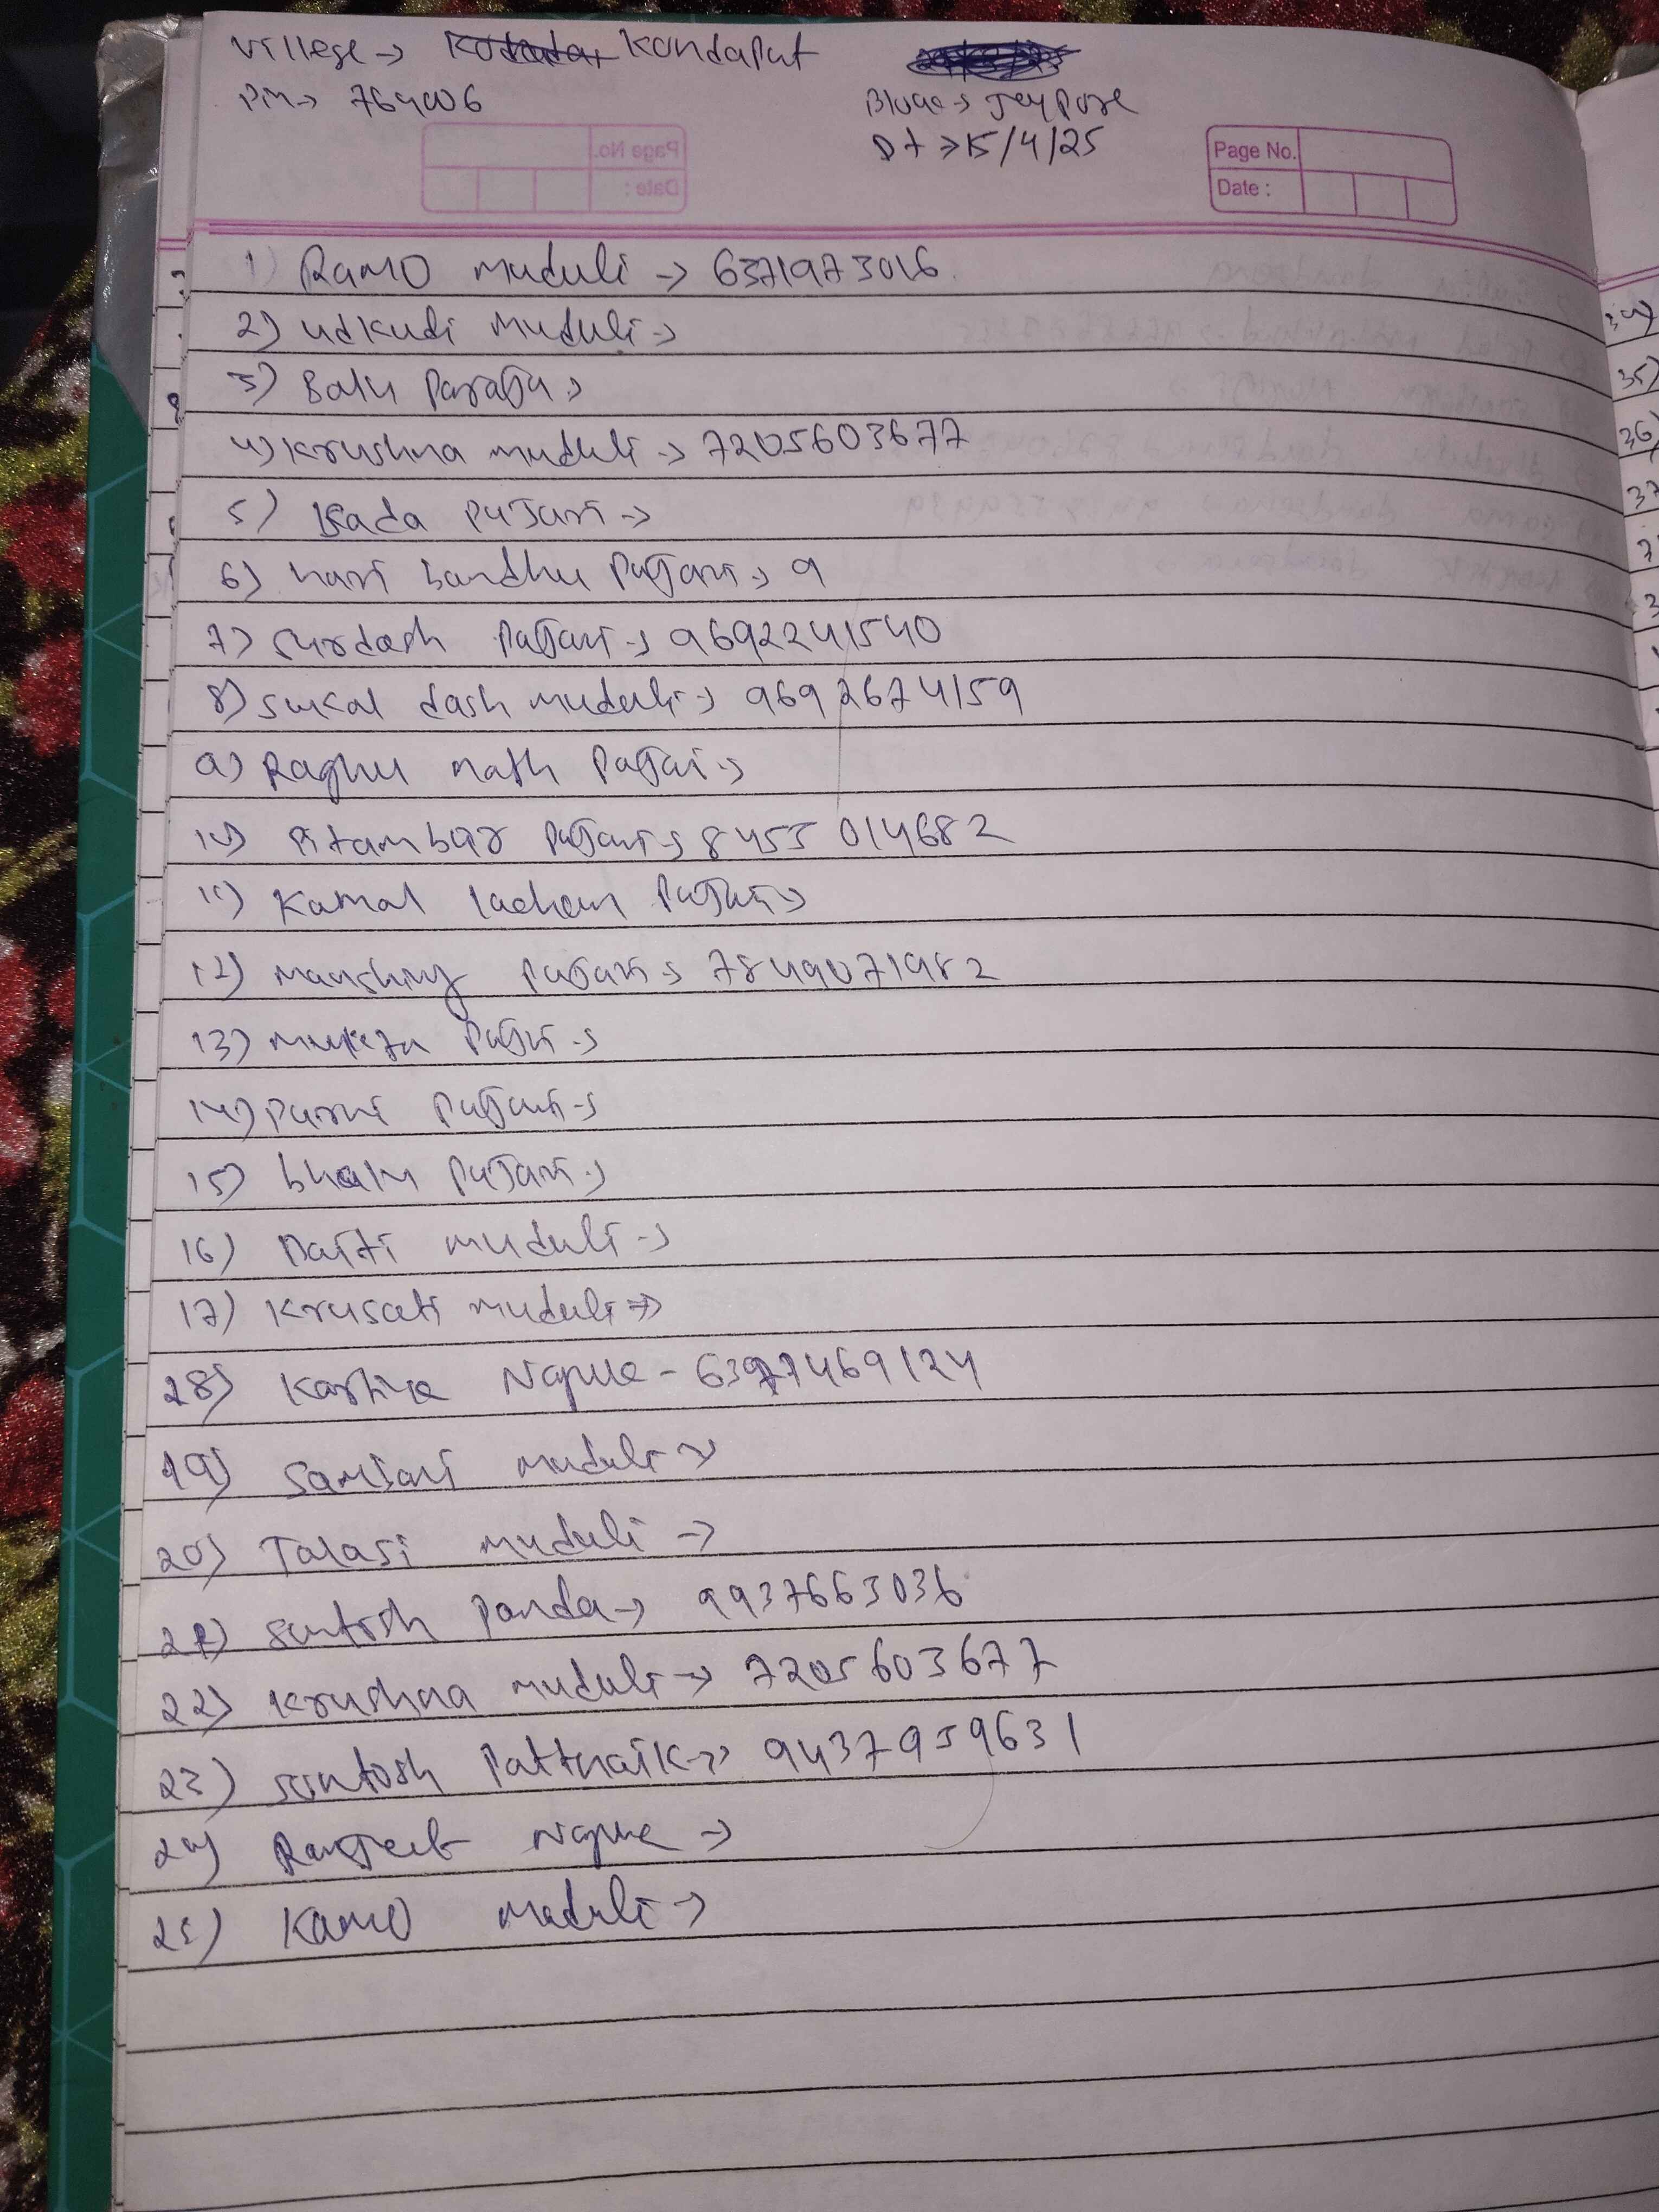 Villege → Kondaput
Pin → 764006
Bloac → Jeypore
Dt → 15/4/25
Page No.
Date :
1) Ramo muduli → 6371973016
2) udkudi muduli →
3) Balu Paraja →
4) Krushna muduli → 7205603677
5) Kada Pujari →
6) hari bandhu Pujari → 9
7) surdash Pujari → 9692241540
8) sukal dash muduli → 9692674159
9) Raghu nath Pujari →
10) Pitambar Pujari → 8455014682
11) Kamal lachan Pujari →
12) manshing Pujari → 7849071982
13) Pujari →
14) Parvi Pujari →
15) bhalu Pujari →
16) Daiti muduli →
17) Krusati muduli →
28) Nayak - 469124
19) Sambari muduli →
20) Talasi muduli →
21) santosh Panda → 9937663036
22) Krushna muduli → 7205603677
23) santosh Pattnaik → 9437959631
24) Ranjeet Nayak →
25) Kamo muduli →
34)
35)
36)
37